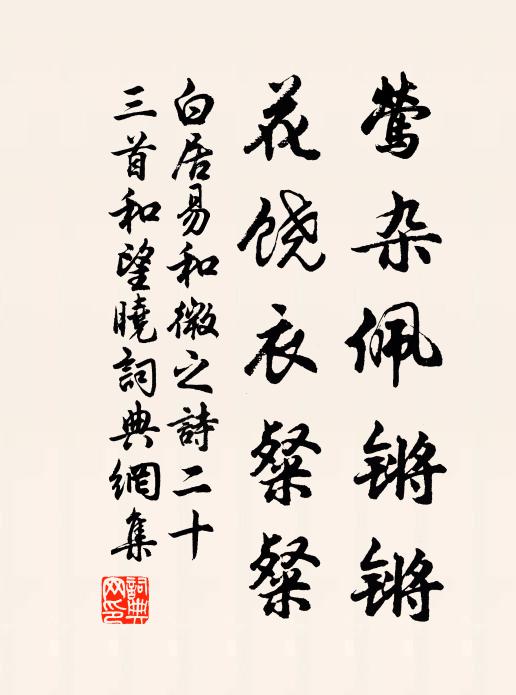 莺杂佩锵锵
花饶衣粲粲
白居易和微之詩二十
三首和望曉詞典網集
詞典网印